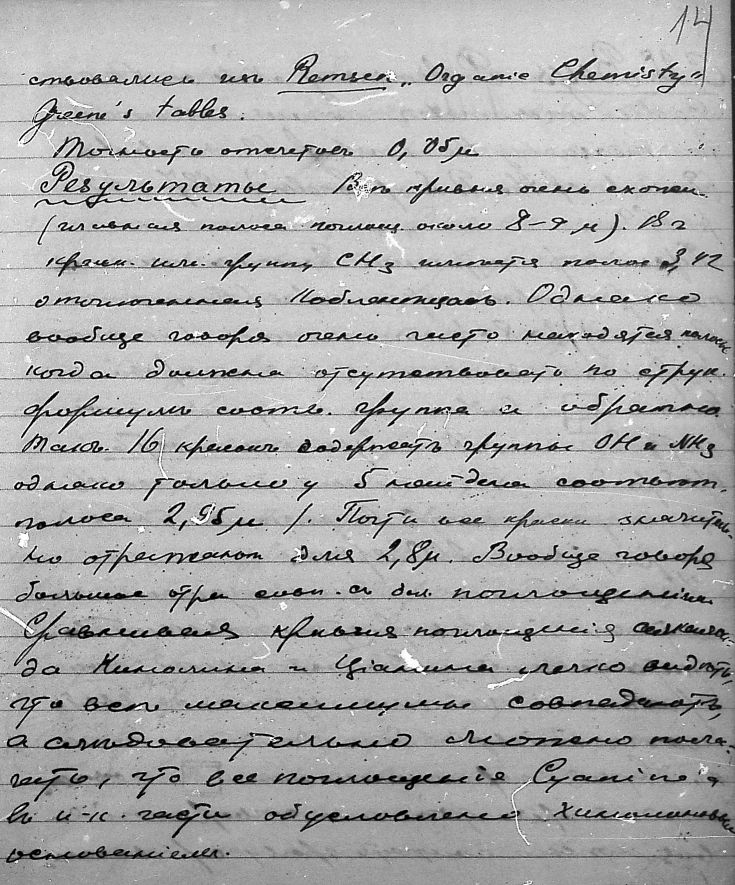 14
ствовались изъ Remsen „Organic Chemisty“
Greene's tables.
Точность отчетовъ 0,05 μ
Результаты Всѣ кривыя очень схожи
(главная полоса поглощ. около 8–9 μ). 18
красн. группы CH3 имѣется полоса 3,42
отмѣченная Кобленцомъ. Однако
вообще говоря очень часто находятся полосы
когда должна отсутствовать по струк.
формулѣ соотв. группа и обратно
Такъ 16 красокъ содержатъ группы OH и NH3
однако только у 5 найдена соотвѣт.
полоса 2,95 μ). Почти все краски значитель-
но отражаютъ для 2,8 μ. Вообще говоря
большое отра совп. съ бол. поглощеніемъ
Сравнивая кривыя поглощенія
да Хинолина и Ціанина легко видѣть,
что всѣ максимумы совпадаютъ,
а слѣдовательно можно пола-
гать, что все поглощеніе Cyanine'а
въ и-к. части обусловлено Хинолиновымъ
основаніемъ.